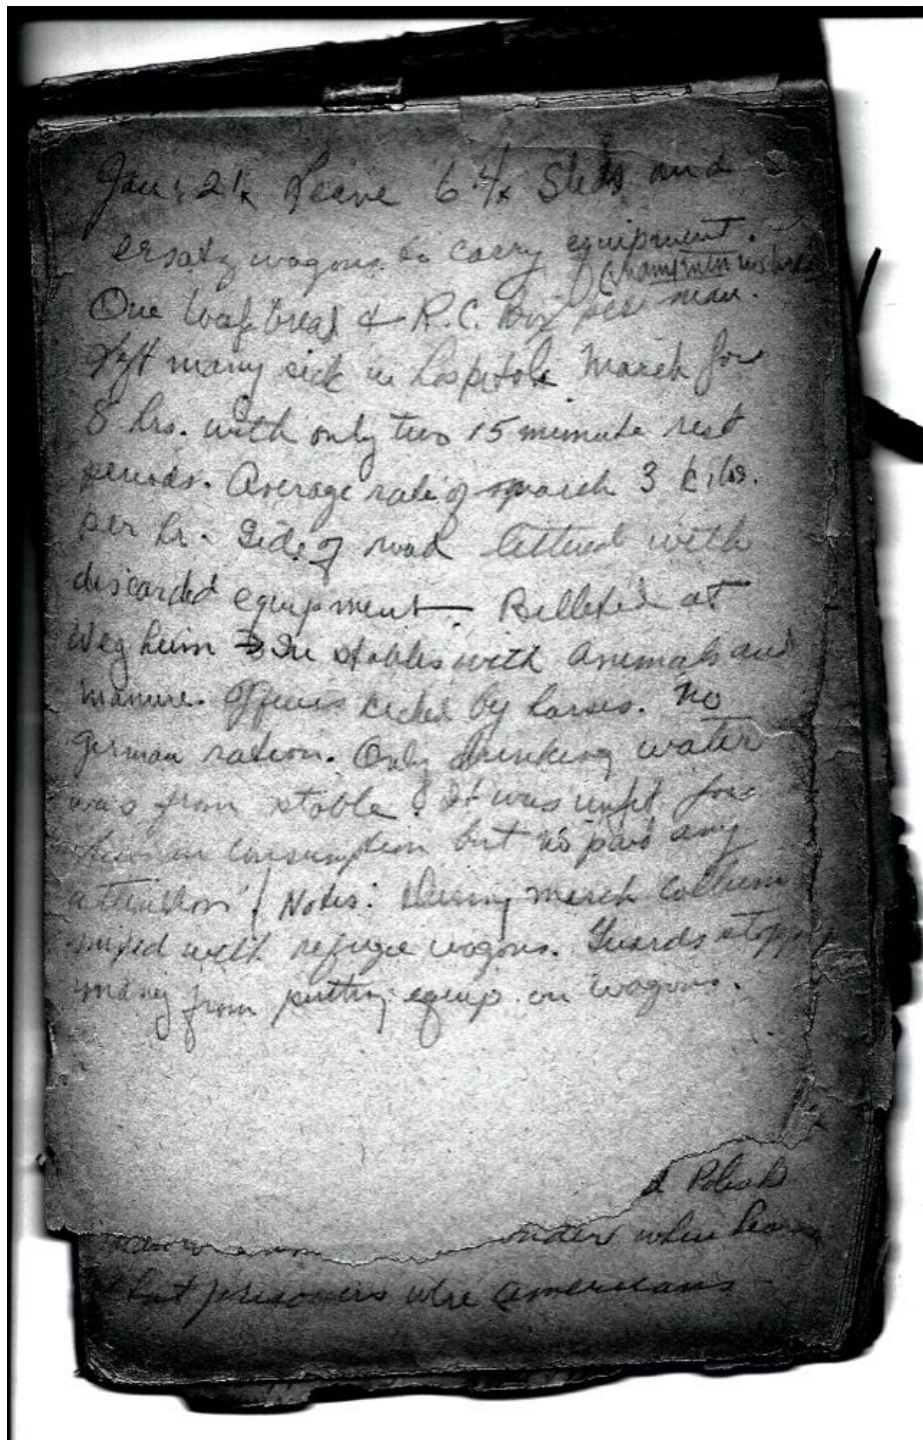 Jan. 21. Leave 64. Sleds and
ersatz wagons to carry equipment.
(many men
One loaf bread & R.C. box per man.
Left many sick in hospital. March for
8 hrs. with only two 15 minute rest
periods. Average rate of march 3 kilos.
per hr. Side of road littered with
discarded equipment. Billeted at
Wegheim In stables with animals and
manure. Officers kicked by horses. No
German ration. Only drinking water
was from stable. It was unfit for
human consumption but no paid any
attention! Notes: During march column
mixed with refugee wagons. Guards stopping
many from putting equip. on wagons.
d Polish
onder when hearing
that prisoners were Americans